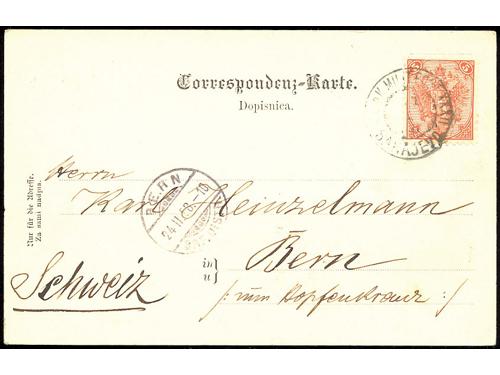 Correspondenz-Karte.
Dopisnica.
5 5
SARAJEVO
Nur für die Adresse.
Za sami naslov.
Herrn
Karl Heinzelmann
BERN
24.II. 8-10
in
u
Bern
Schweiz
/: zum Hopfenkranz :/